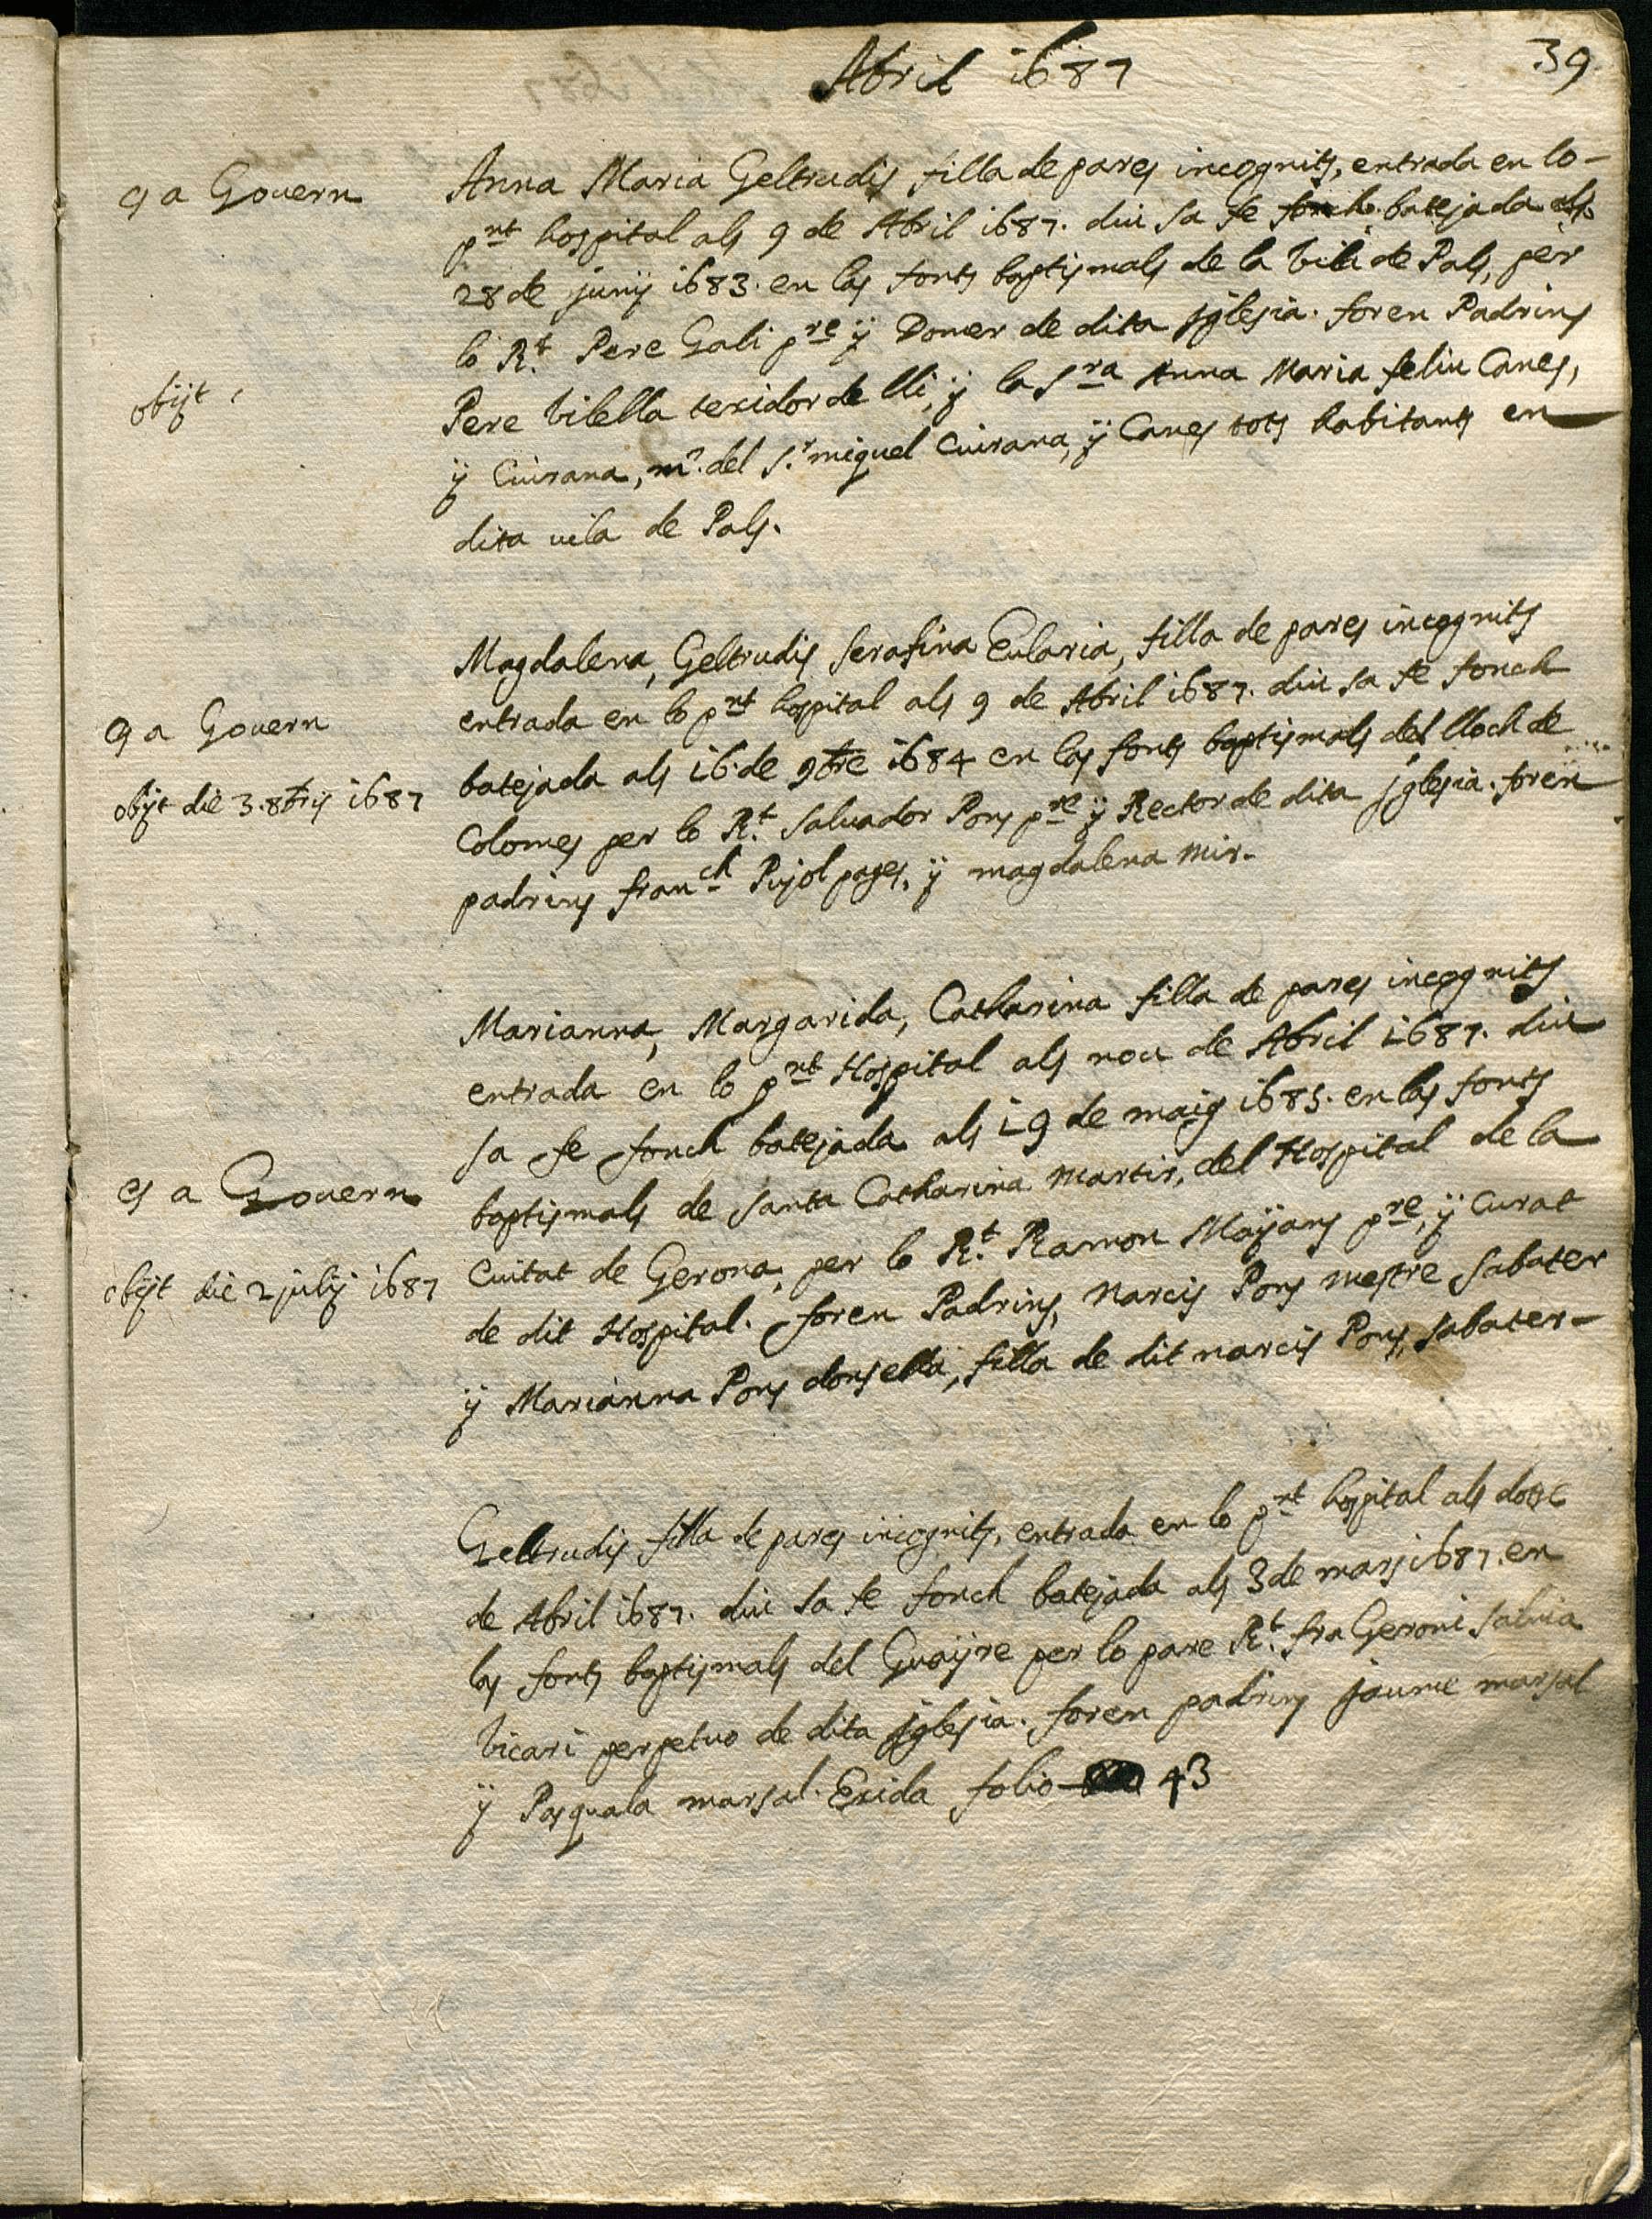 Abril 1687
39
9 a Gouern
Anna Maria Geltrudis filla de pares incognits, entrada en lo-
pnt hospital als 9 de Abril 1687. diu sa fe fonch batejada als
28 de juny 1683. en las fonts baptismals de la Vila de Pals, per
lo Rt. Pere Gali pre ÿ Domer de dita Iglesia. foren Padrins
obijt
Pere Vilella texidor de lli, ÿ la Sra Anna Maria feliu Canes,
ÿ Ciurana, mr. del Sr. miquel Ciurana, ÿ Canes tots habitants en
dita vila de Pals.
Magdalena, Geltrudis Serafina Eularia, filla de pares incognits
entrada en lo pnt hospital als 9 de Abril 1687. diu sa fe fonch
9 a Gouern
batejada als 16 de 9bre 1684 en las fonts baptismals del lloch de
obijt die 3. 8bris 1687
Colomes per lo Rt. Saluador Pons pre ÿ Rector de dita Iglesia. foren
padrins franch Pujol pages, ÿ magdalena mir.
Marianna, Margarida, Catharina filla de pares incognits
entrada en lo pnt Hospital als nou de Abril 1687. diu
sa fe fonch batejada als 19 de maig 1685. en las fonts
9 a Gouern
baptismals de Santa Catharina Martir, del Hospital de la
obijt die 2 julij 1687
Ciutat de Gerona, per lo Rt. Ramon Maÿans pre, ÿ Curat
de dit Hospital. foren Padrins, Narcis Pons mestre Sabater
ÿ Marianna Pons donsella, filla de dit narcis Pons, sabater-
Geltrudis filla de pares incognits, entrada en lo pnt hospital als dotse
de Abril 1687. diu sa fe fonch batejada als 3 de mars 1687. en
las fonts baptismals del Guaÿre per lo pare Rt. fra Geroni Saluia
Vicari perpetuo de dita Iglesia. foren padrins jaume marsal
ÿ Pasquala marsal. Exida folio 43